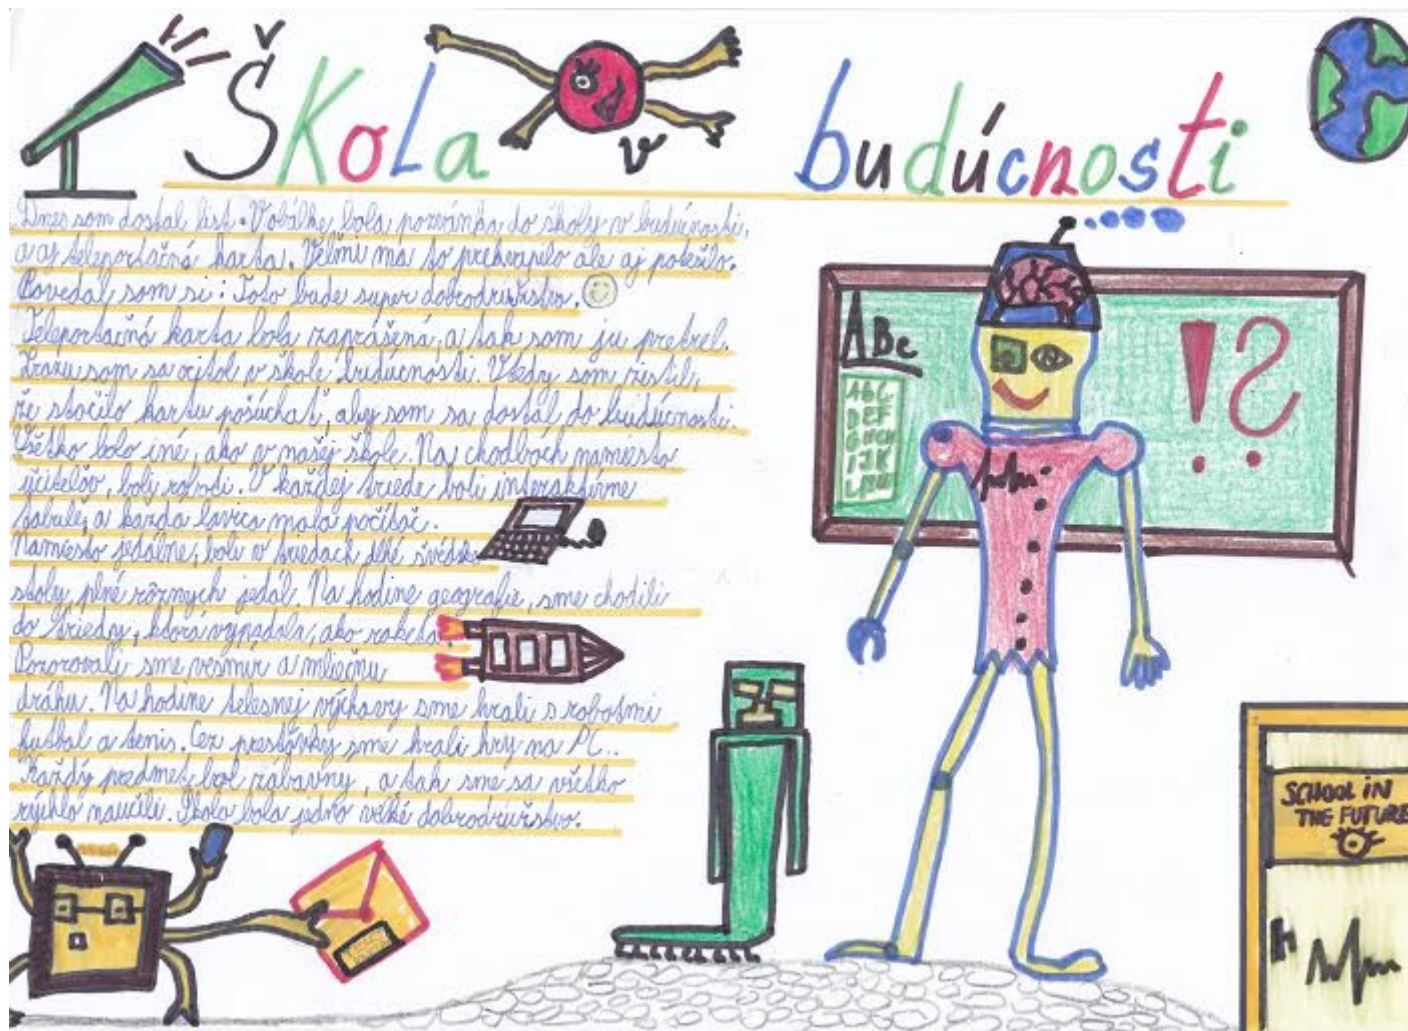 Škola v budúcnosti
Dnes som dostal list. V obálke bola pozvánka do školy v budúcnosti,
a aj teleportačná karta. Veľmi ma to prekvapilo ale aj potešilo.
Povedal som si: Toto bude super dobrodružstvo.
Teleportačná karta bola zaprášená, a tak som ju pretrel.
Zrazu som sa ocitol v škole budúcnosti. Vtedy som zistil,
že stačilo kartu pošúchať, aby som sa dostal do budúcnosti.
Všetko bolo iné, ako v našej škole. Na chodbách namiesto
učiteľov, boli roboti. V každej triede boli interaktívne
tabule, a každá lavica mala počítač.
Namiesto jedálne, boli v triedach dlhé švédske
stoly, plné rôznych jedál. Na hodine geografie, sme chodili
do triedy, ktorá vyzerala, ako raketa.
Pozorovali sme vesmír a mliečnu
dráhu. Na hodine telesnej výchovy sme hrali s robotmi
futbal a tenis. Cez prestávky sme hrali hry na PC..
Každý predmet bol zábavný, a tak sme sa všetko
rýchlo naučili. Škola bola jedno veľké dobrodružstvo.
ABC
ABC
DEF
GHCH
IJK
!?
SCHOOL IN
THE FUTURE